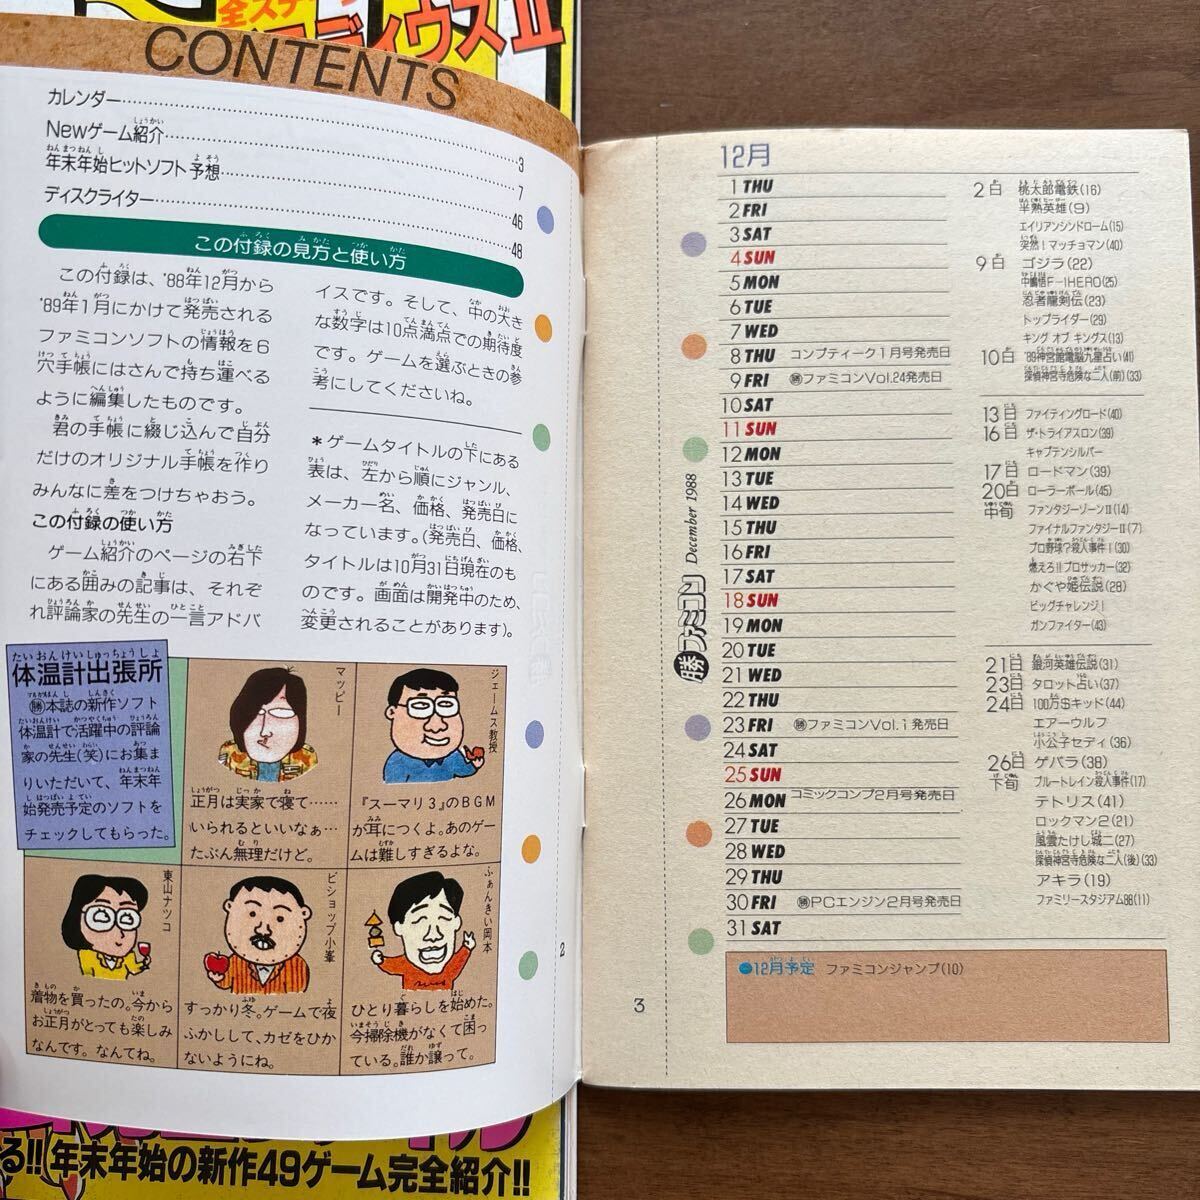 CONTENTS
カレンダー……3
Newゲーム紹介……7
年末年始ヒットソフト予想……46
ディスクライター……48
この付録の見方と使い方
この付録は、'88年12月から
'89年1月にかけて発売される
ファミコンソフトの情報を6
穴手帳にはさんで持ち運べる
ように編集したものです。
君の手帳に綴じ込んで自分
だけのオリジナル手帳を作り
みんなに差をつけちゃおう。
この付録の使い方
ゲーム紹介のページの右下
にある囲みの記事は、それぞ
れ評論家の先生の一言アドバ
イスです。そして、中の大き
な数字は10点満点での期待度
です。ゲームを選ぶときの参
考にしてくださいね。
*ゲームタイトルの下にある
表は、左から順にジャンル、
メーカー名、価格、発売日に
なっています。(発売日、価格、
タイトルは10月31日現在のも
のです。画面は開発中のため、
変更されることがあります)。
体温計出張所
㊝本誌の新作ソフト
体温計で活躍中の評論
家の先生(笑)にお集ま
りいただいて、年末年
始発売予定のソフトを
チェックしてもらった。
マッピー
正月は実家で寝て……
いられるといいなぁ…
たぶん無理だけど。
ジェームス教授
『スーマリ3』のBGM
が耳につくよ。あのゲー
ムは難しすぎるよな。
東山ナツコ
着物を買ったの。今から
お正月がとっても楽しみ
なんです。なんてね。
ビショップ小峯
すっかり冬。ゲームで夜
ふかしして、カゼをひか
ないようにね。
ふぁんきい岡本
ひとり暮らしを始めた。
今掃除機がなくて困っ
ている。誰か譲って。
2
12月
1 THU
2 FRI
3 SAT
4 SUN
5 MON
6 TUE
7 WED
8 THU コンプティーク1月号発売日
9 FRI 勝ファミコンVol.24発売日
10 SAT
11 SUN
12 MON
13 TUE
14 WED
15 THU
16 FRI
17 SAT
18 SUN
19 MON
20 TUE
21 WED
22 THU
23 FRI 勝ファミコンVol.1発売日
24 SAT
25 SUN
26 MON コミックコンプ2月号発売日
27 TUE
28 WED
29 THU
30 FRI 勝PCエンジン2月号発売日
31 SAT
2日 桃太郎電鉄(16)
半熟英雄(9)
エイリアンシンドローム(15)
突然!マッチョマン(40)
9日 ゴジラ(22)
中嶋悟F-1HERO(25)
忍者龍剣伝(23)
トップライダー(29)
キング オブ キングス(13)
10日 '89神宮館電脳九星占い(41)
探偵神宮寺危険な二人(前)(33)
13日 ファイティングロード(40)
16日 ザ・トライアスロン(39)
キャプテンシルバー
17日 ロードマン(39)
20日 ローラーボール(45)
中旬 ファンタジーゾーンII(14)
ファイナルファンタジーII(7)
プロ野球?殺人事件!(30)
燃えろ!!プロサッカー(32)
かぐや姫伝説(28)
ビッグチャレンジ!
ガンファイター(43)
21日 銀河英雄伝説(31)
23日 タロット占い(37)
24日 100万$キッド(44)
エアーウルフ
小公子セディ(36)
26日 ゲバラ(38)
下旬 ブルートレイン殺人事件(17)
テトリス(41)
ロックマン2(21)
風雲たけし城二(27)
探偵神宮寺危険な二人(後)(33)
アキラ(19)
ファミリースタジアム88(11)
12月予定 ファミコンジャンプ(10)
December 1988
勝ファミコン
3
る!!年末年始の新作49ゲーム完全紹介!!